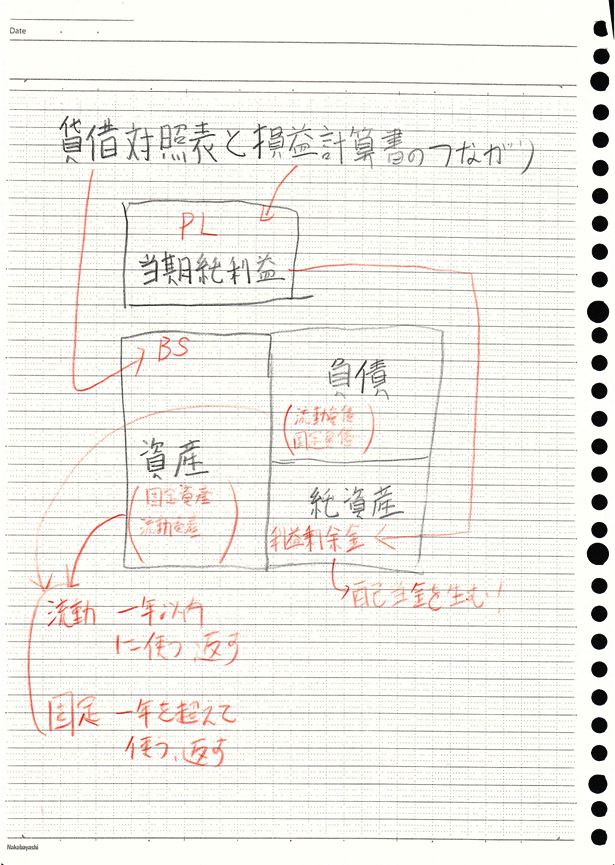 Date
貸借対照表と損益計算書のつながり
PL
当期純利益
BS
負債
(流動負債
固定負債)
資産
(固定資産
流動資産)
純資産
利益剰余金
配当金を生む!
流動 一年以内
に使う、返す
固定 一年を超えて
使う、返す
Nakabayashi